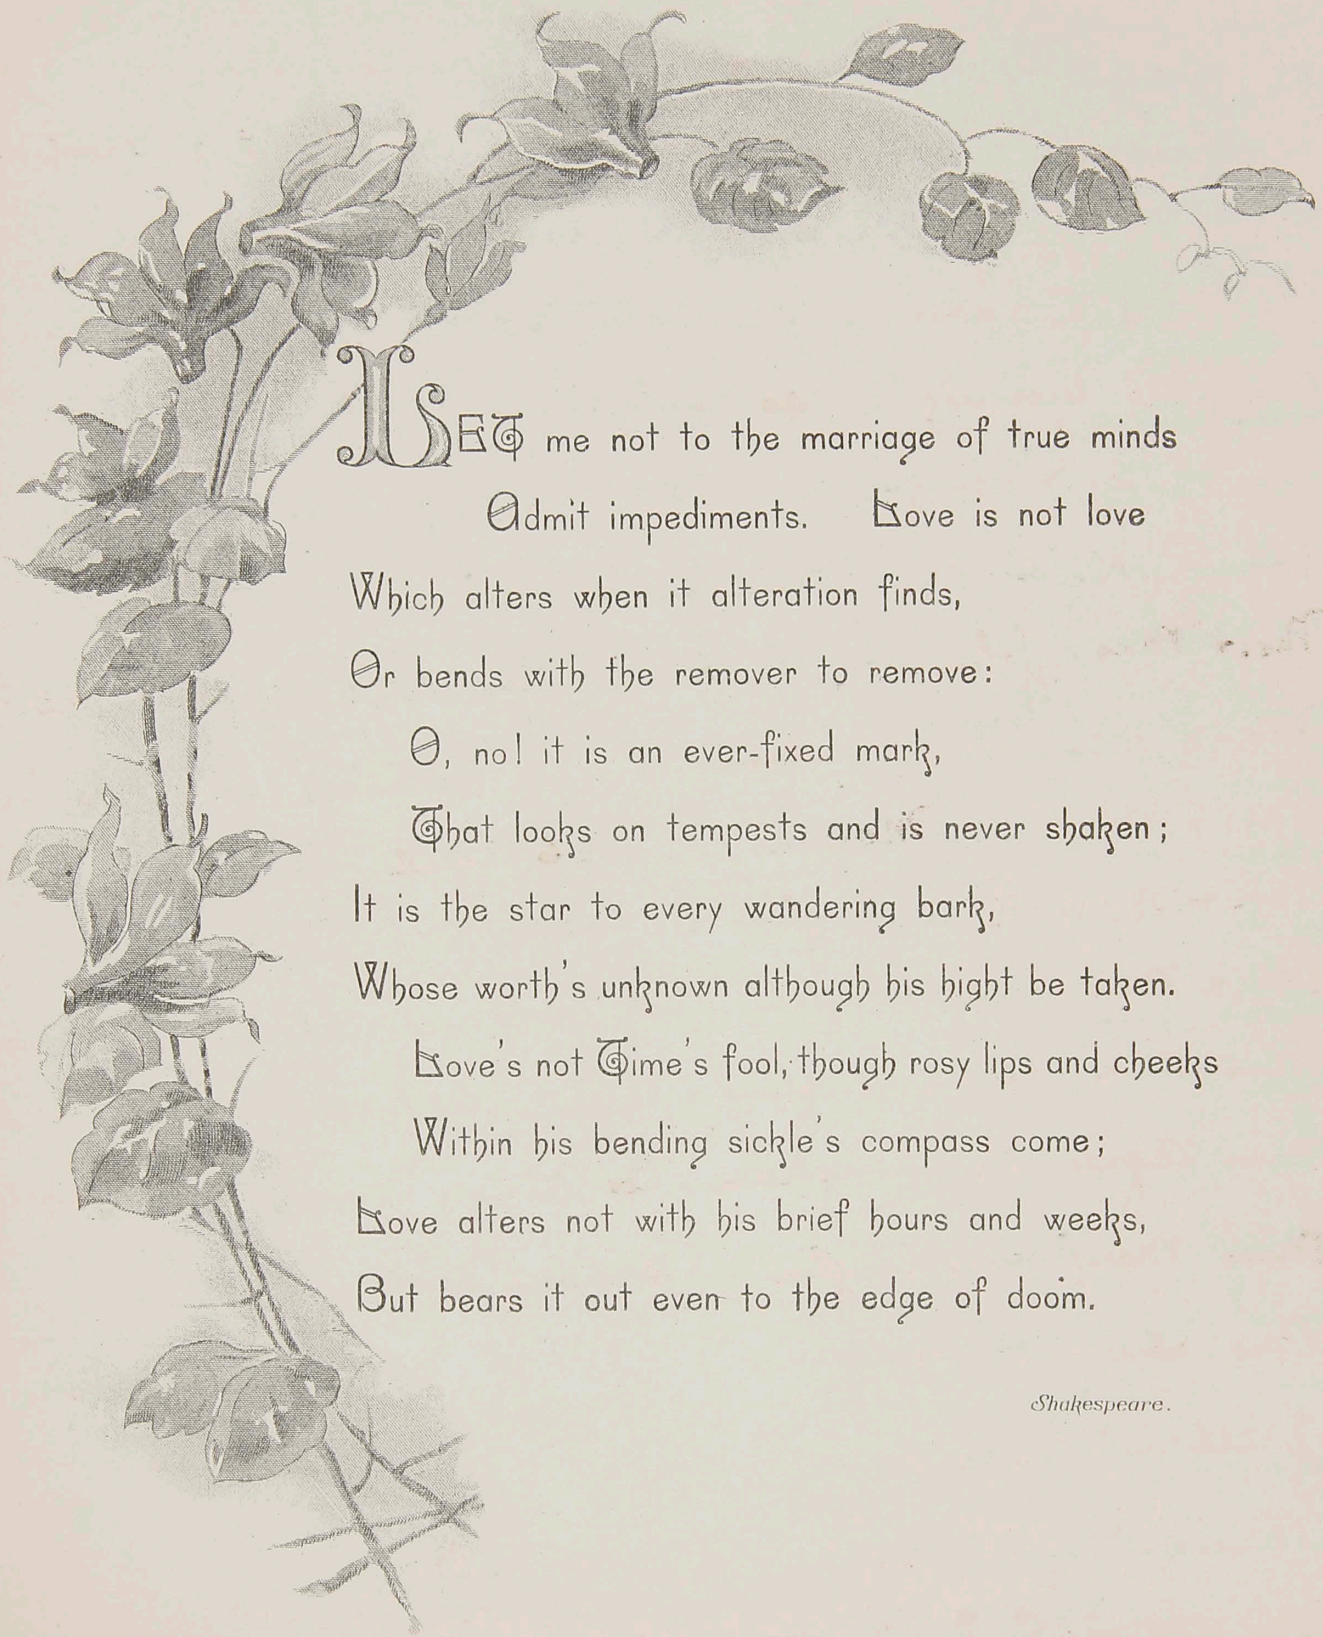 LET me not to the marriage of true minds
Admit impediments. Love is not love
Which alters when it alteration finds,
Or bends with the remover to remove:
O, no! it is an ever-fixed mark,
That looks on tempests and is never shaken;
It is the star to every wandering bark,
Whose worth's unknown although his hight be taken.
Love's not Time's fool, though rosy lips and cheeks
Within his bending sickle's compass come;
Love alters not with his brief hours and weeks,
But bears it out even to the edge of doom.
Shakespeare.